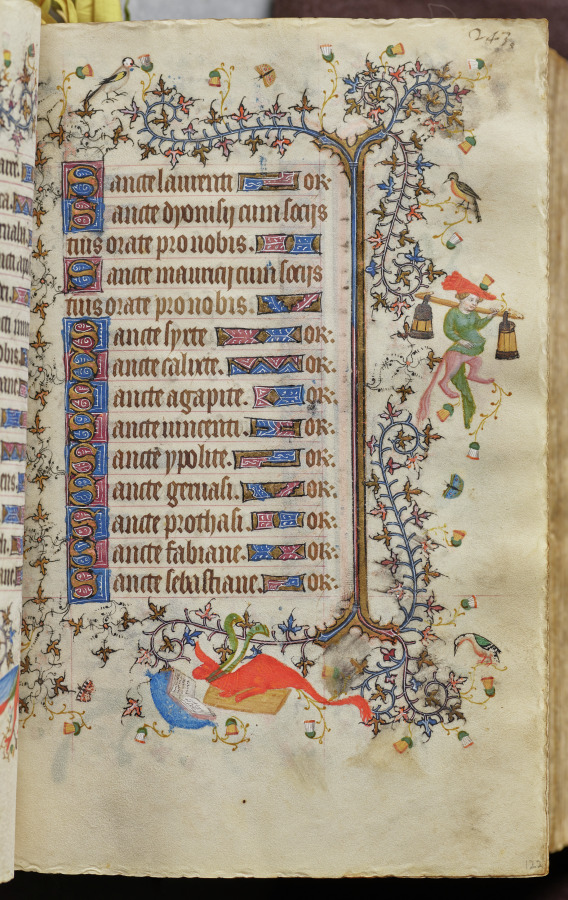 243
Sancte laurenti or
Sancte dyonisij cum socijs
tuis orate pro nobis.
Sancte mauricij cum socijs
tuis orate pro nobis.
Sancte syxte or.
Sancte calixte. or.
Sancte agapite. or.
Sancte vincenti or.
Sancte ypolite. or.
Sancte geruasi. or.
Sancte prothasi. or.
Sancte fabiane. or.
Sancte sebastiane. or.
122